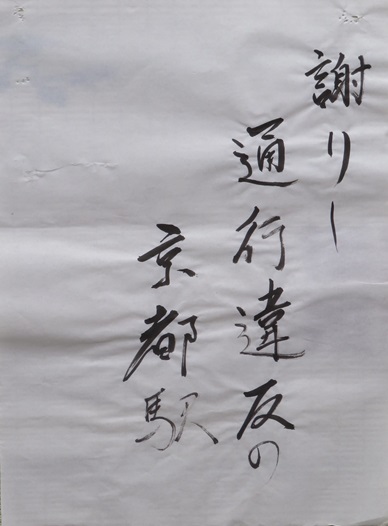 謝りし
通行違反の
京都駅